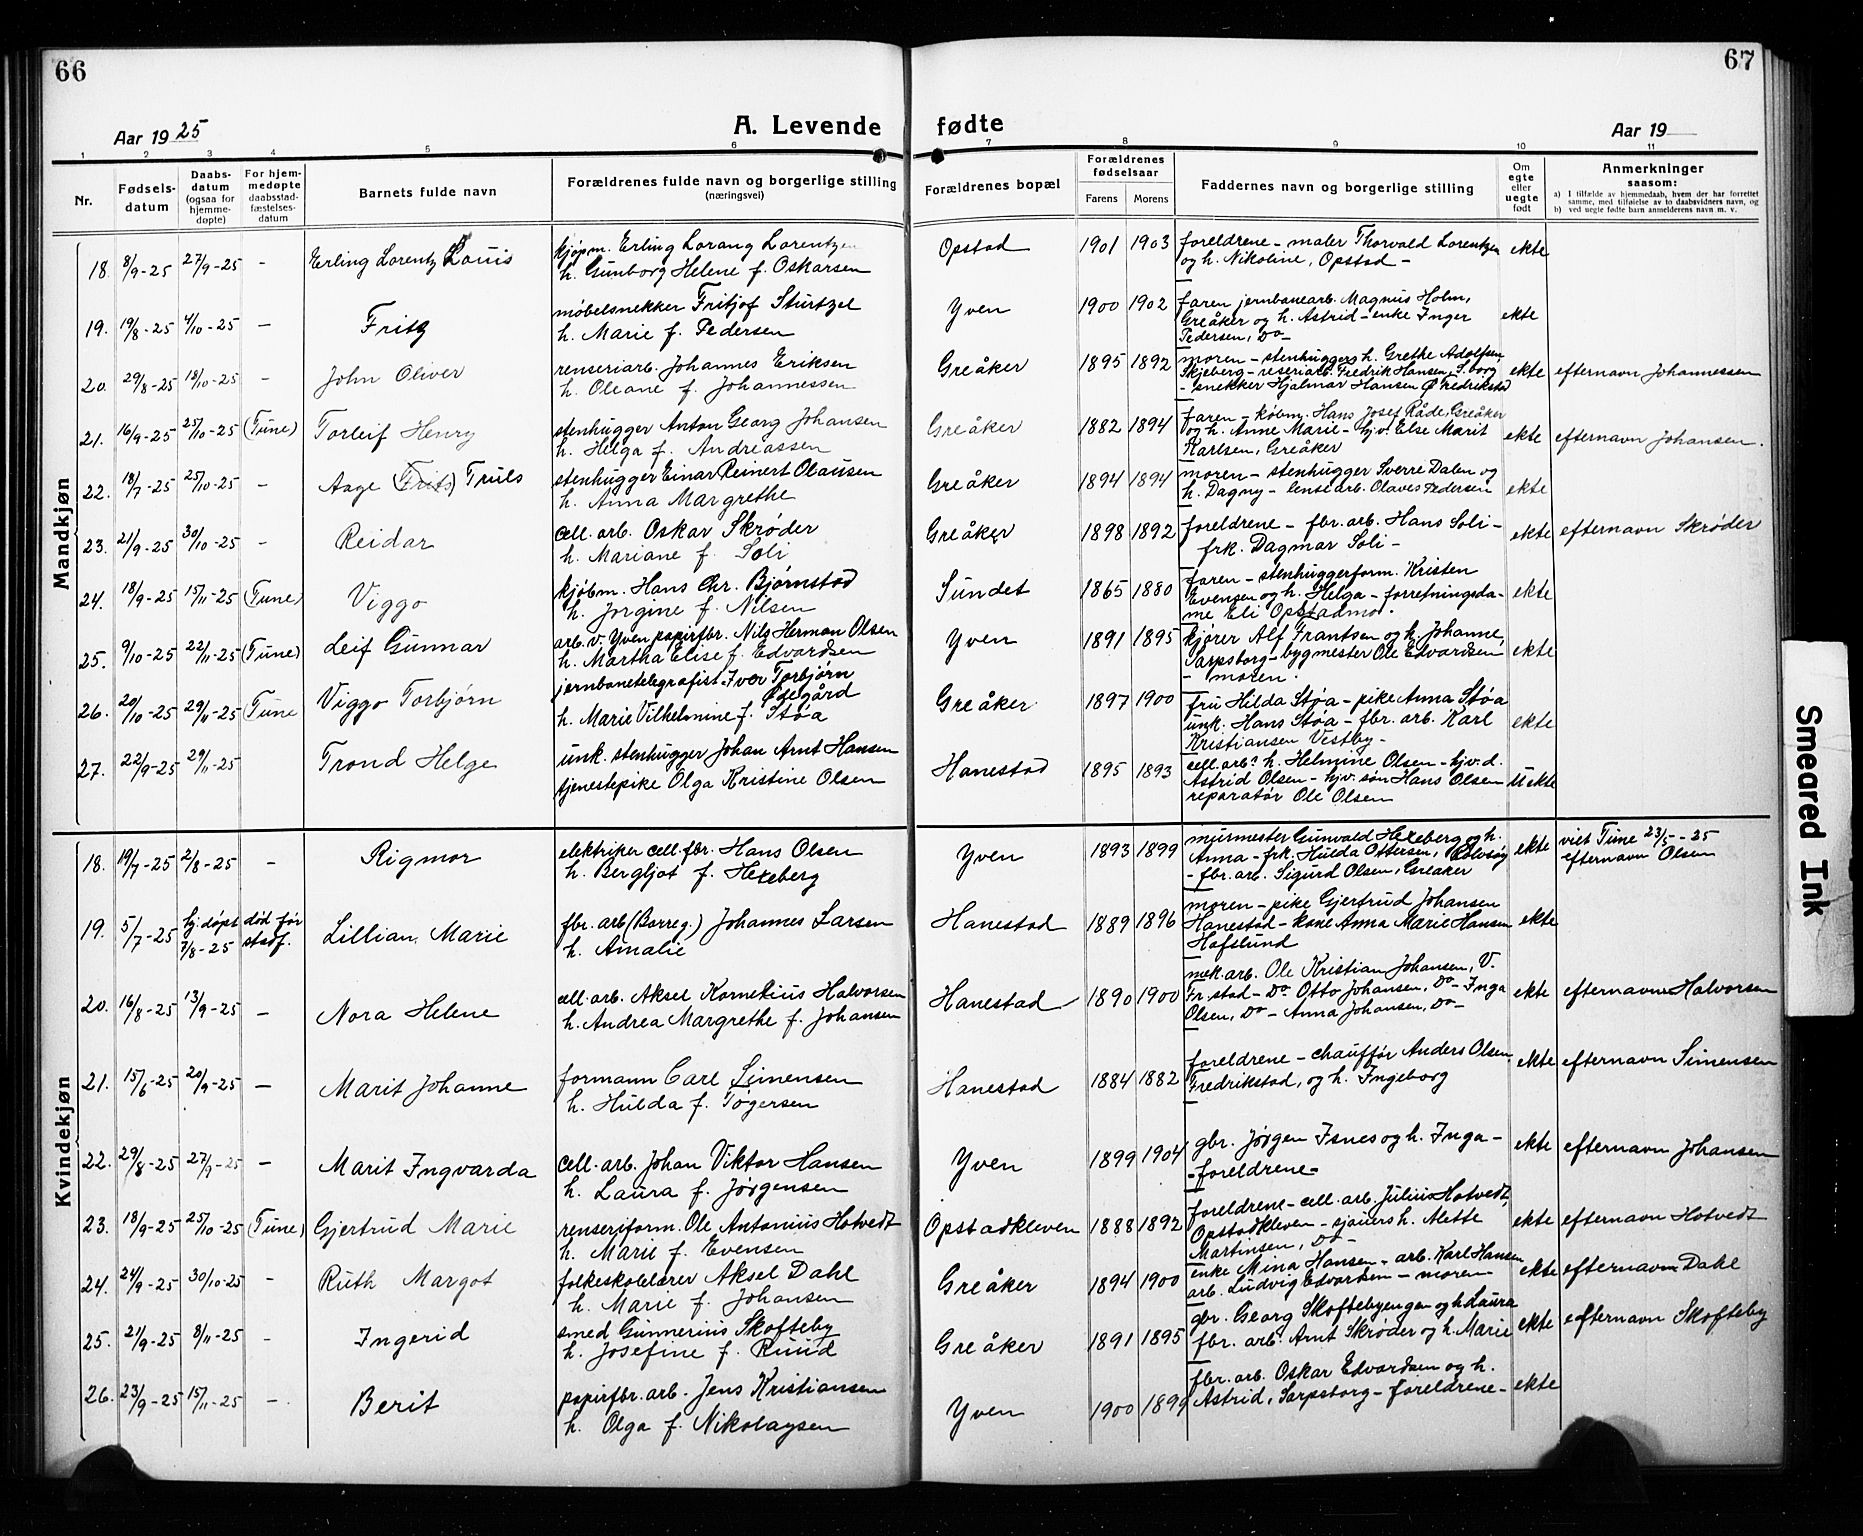 66
67
Aar 1925
A. Levende fødte
Aar 19
1 2 3 4 5 6 7 8 9 10 11
Nr.
Fødsels-
datum
Daabs-
datum
(ogsaa for
hjemme-
døpte)
For hjem-
medøpte
daabsstad-
fæstelses-
datum
Barnets fulde navn
Forældrenes fulde navn og borgerlige stilling
(næringsvei)
Forældrenes bopæl
Forældrenes
fødselsaar
Farens Morens
Faddernes navn og borgerlige stilling
Om
egte
eller
uegte
født
Anmerkninger
saasom:
a) I tilfælde av hjemmedaab, hvem der har forrettet
samme, med tilføielse av to daabsvidners navn, og
b) ved uegte fødte barn anmelderens navn m. v.
Mandkjøn
18. 8/9-25 27/9-25 - Erling Lorentz Louis
kjøpm. Erling Lorang Lorentzen
h. Gunborg Helene f. Oskarsen
Opstad 1901 1903
foreldrene - maler Thorvald Lorentzen
og h. Nikoline, Opstad -
ekte
19. 19/8-25 4/10-25 - Fritz
møbelsnekker Fritjof Sturtzel
h. Marie f. Pedersen
Yven 1900 1902
faren jernbanearb. Magnus Holm,
Greåker og h. Astrid - enke Inger
Pedersen, Do -
ekte
20. 29/8-25 18/10-25 - John Oliver
renseriarb. Johannes Eriksen
h. Oleane f. Johannessen
Greåker 1895 1892
moren - stenhuggers h. Grethe Adolfsen
Skjeberg - reseriarb. Fredrik Hansen, S.borg
- snekker Hjalmar Hansen Ø Fredrikstad
ekte efternavn Johannessen
21. 16/9-25 25/10-25 (Tune) Torleif Henry
stenhugger Anton Georg Johansen
h. Helga f. Andreassen
Greåker 1882 1894
faren - købm. Hans Josef Råde, Greåker
og h. Anne Marie - hj.v. Else Marit
Karlsen, Greåker
ekte efternavn Johansen.
22. 18/7-25 25/10-25 - Aage (Frits) Truls
stenhugger Einar Reinert Olausen
h. Anna Margrethe
Greåker 1894 1894
moren - stenhugger Sverre Dalen og
h. Dagny - lensearb. Olaves Pedersen
ekte
23. 21/9-25 30/10-25 - Reidar
cell. arb. Oskar Skrøder
h. Mariane f. Soli
Greåker 1898 1892
foreldrene - fbr. arb. Hans Soli -
frk. Dagmar Soli -
ekte efternavn Skrøder
24. 18/9-25 15/11-25 (Tune) Viggo
kjøbm. Hans Chr. Bjørnstad
h. Jorgine f. Nilsen
Sundet 1865 1880
faren - stenhuggerform. Kristen
Evensen og h. Helga - forretningsda-
me Eli Opstadmo.
ekte
25. 9/10-25 22/11-25 (Tune) Leif Gunnar
arb. v. Yven papirfbr. Nils Herman Olsen
h. Martha Elise f. Edvardsen
Yven 1891 1895
kjører Alf Frantsen og h. Johanne,
Sarpsborg - bygmester Ole Edvardsen
- moren.
ekte
26. 20/10-25 29/11-25 Tune Viggo Torbjørn
jernbanetelegrafist Iver Torbjørn
Ødegård
h. Marie Vilhelmine f. Støa
Greåker 1897 1900
fru Hilda Støa - pike Anna Støa
unk. Hans Støa - fbr. arb. Karl
Kristiansen Vestby -
ekte
27. 22/9-25 29/11-25 Trond Helge
unk. stenhugger Johan Arnt Hansen
tjenestepike Olga Kristine Olsen
Hanestad 1895 1893
cell. arb.s h. Helmine Olsen - hj.v. d.
Astrid Olsen - hjv. søn Hans Olsen
reparatør Ole Olsen
uekte
Kvindekjøn
18. 19/7-25 2/8-25 - Rigmor
elektriker cell. fbr. Hans Olsen
h. Bergljot f. Hexeberg
Yven 1893 1899
murmester Gunvald Hexeberg og h.
Anna - frk. Hulda Ottersen, Rolvsøy
- fbr. arb. Sigurd Olsen, Greåker
ekte viet Tune 23/5-25
efternavn Olsen
19. 5/7-25 hj. døpt 7/8-25 død før stadf. Lillian Marie
fbr. arb (Borreg.) Johannes Larsen
h. Amalie
Hanestad 1889 1896
moren - pike Gjertrud Johansen
Hanestad - kone Anna Marie Hansen
Hafslund
ekte
20. 16/8-25 13/9-25 - Nora Helene
cell. arb. Aksel Kornelius Halvorsen
h. Andrea Margrethe f. Johansen
Hanestad 1890 1900
mek. arb. Ole Kristian Johansen, V.
Fr. stad - Do Otto Johansen, Do - Inga
Olsen, Do - Anna Johansen, Do -
ekte efternavn Halvorsen
21. 15/6-25 20/9-25 - Marit Johanne
formann Carl Simensen
h. Hulda f. Tøgersen
Hanestad 1884 1882
foreldrene - chauffør Anders Olsen,
Fredrikstad, og h. Ingeborg
ekte efternavn Simensen
22. 29/8-25 27/9-25 - Marit Ingvarda
cell. arb. Johan Viktor Hansen
h. Laura f. Jørgensen
Yven 1899 1904
gbr. Jørgen Isnes og h. Inga -
- foreldrene -
ekte efternavn Johansen
23. 18/9-25 25/10-25 (Tune) Gjertrud Marie
renseriform. Ole Antonius Hotvedt
h. Marie f. Evensen
Opstadkleven 1888 1892
foreldrene - cell. arb. Julius Hotvedt,
Opstadkleven - sjauers h. Mette
Martinsen, Do -
ekte efternavn Hotvedt
24. 24/9-25 30/10-25 - Ruth Margot
folkeskolelærer Aksel Dahl
h. Marie f. Johansen
Greåker 1894 1900
enke Mina Hansen - arb. Karl Hansen
arb. Ludvig Edvardsen - moren
ekte efternavn Dahl
25. 21/9-25 8/11-25 - Ingerid
smed Gunnerius Skofteby
h. Josefine f. Ruud
Greåker 1891 1895
gbr. Georg Skoftebyengen og h Laura
fbr. arb. Arnt Skrøder og h. Marie
ekte efternavn Skofteby
26. 23/9-25 15/11-25 - Berit
papirfbr. arb. Jens Kristiansen
h. Olga f. Nikolaysen
Yven 1900 1899
fbr. arb. Oskar Edvardsen og h.
Astrid, Sarpsborg - foreldrene -
ekte
Smeared Ink